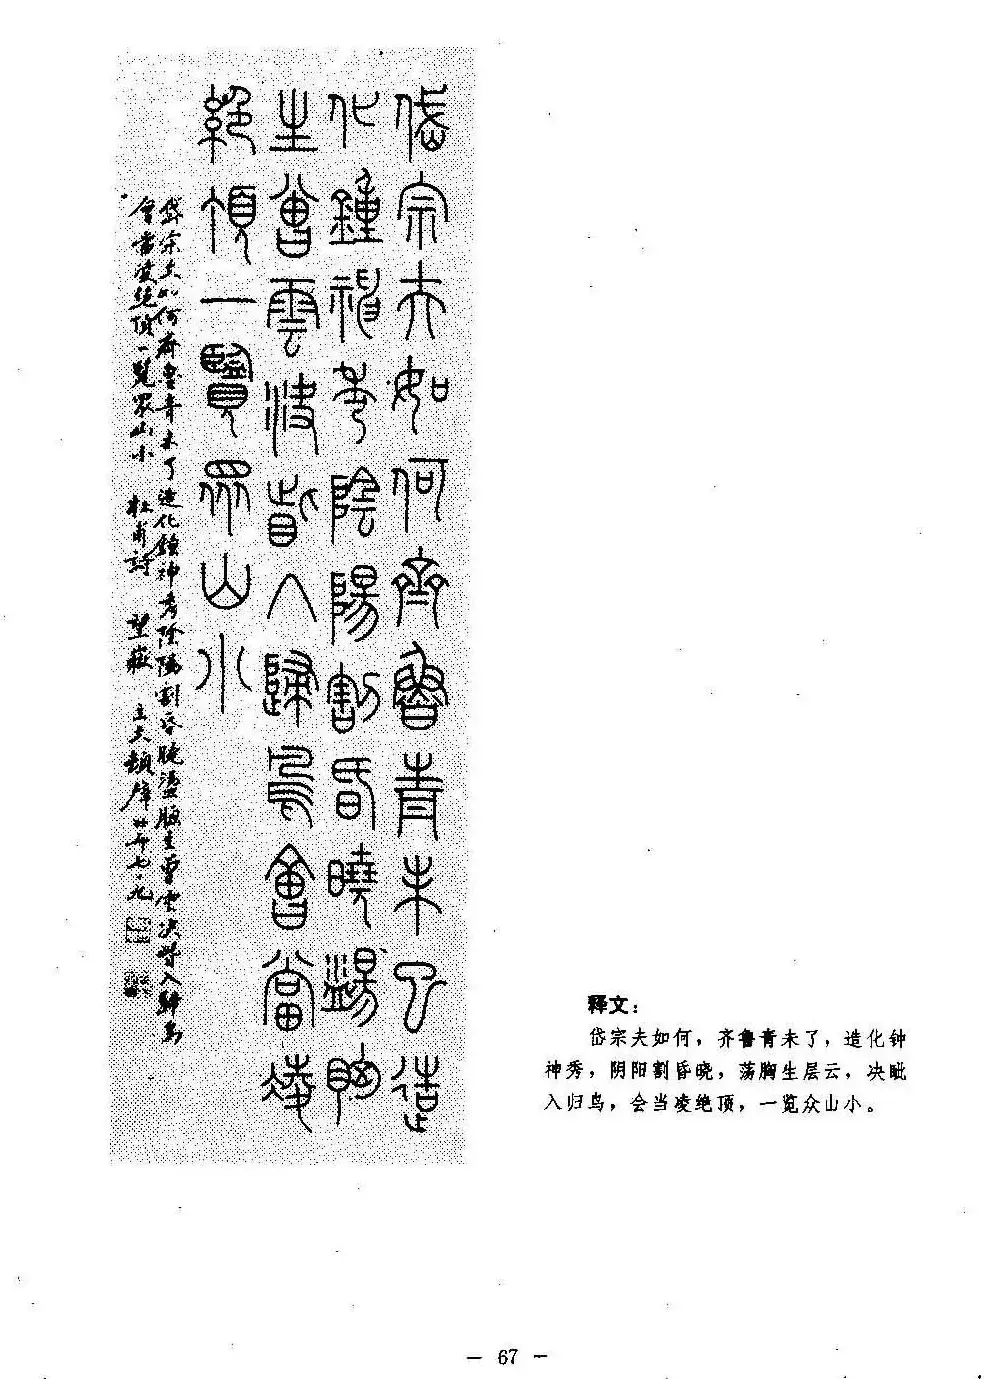 岱宗夫如何齊魯青未了造
化鍾神秀陰陽割昏曉盪胸
生曾雲決眥入歸鳥會當凌
絕頂一覽眾山小
岱宗夫如何齊魯青未了造化鍾神秀陰陽割昏曉盪胸生曾雲決眥入歸鳥
會當凌絕頂一覽眾山小 杜甫詩 望嶽
释文：
岱宗夫如何，齐鲁青未了，造化钟
神秀，阴阳割昏晓，荡胸生层云，决眦
入归鸟，会当凌绝顶，一览众山小。
— 67 —